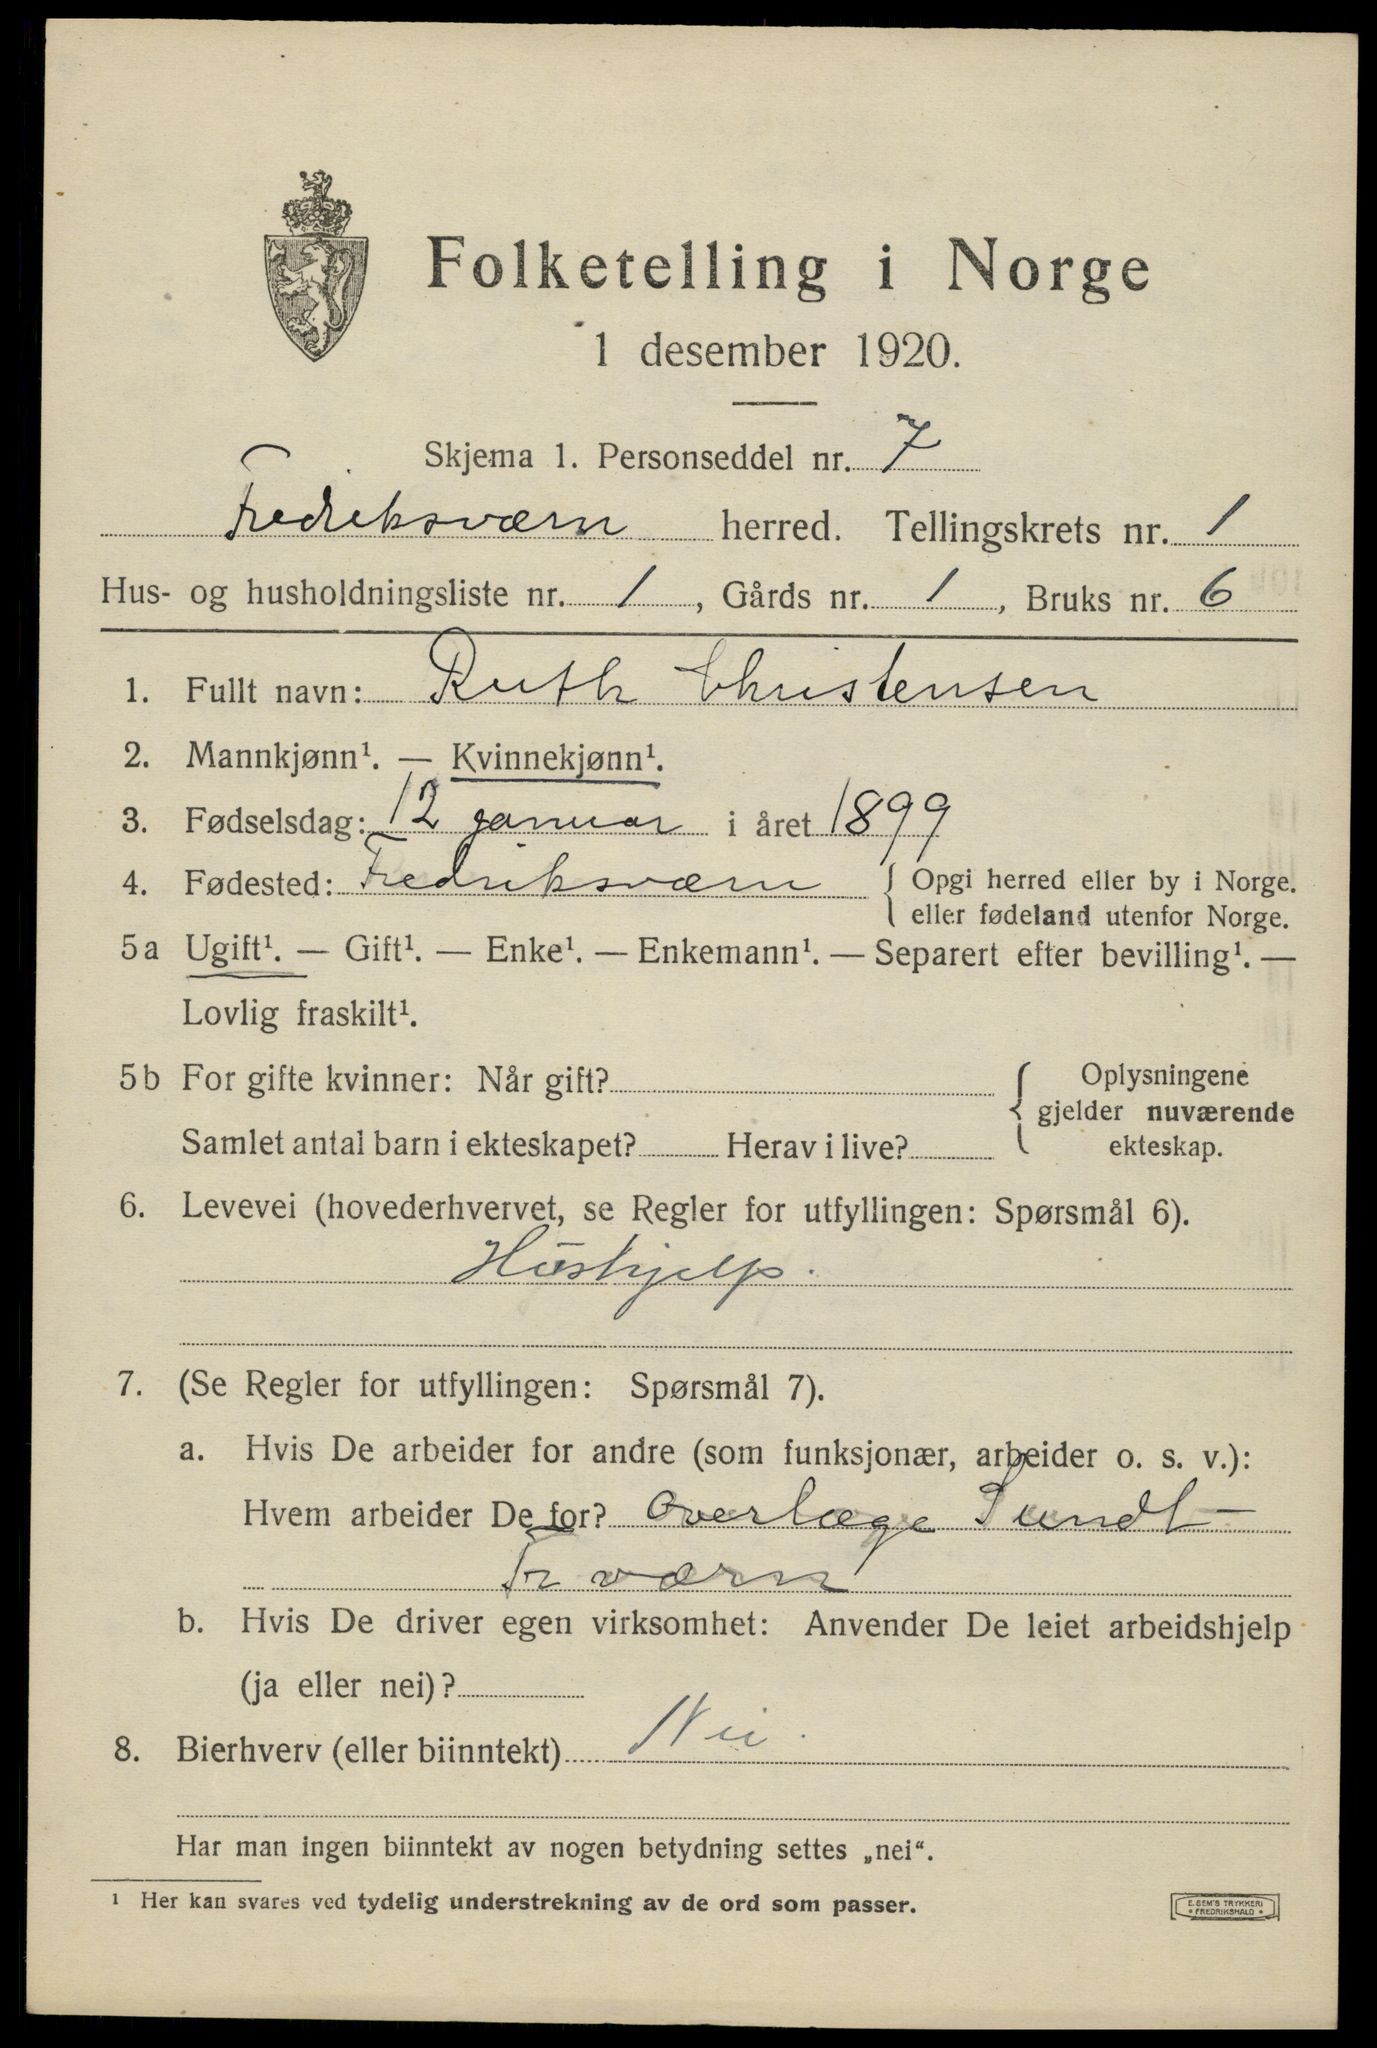 Folketelling i Norge
1 desember 1920.
Skjema 1. Personseddel nr. 7
Fredriksværn herred. Tellingskrets nr. 1
Hus- og husholdningsliste nr. 1, Gårds nr. 1, Bruks nr. 6
1. Fullt navn: Ruth Christensen
2. Mannkjønn¹. — Kvinnekjønn¹.
3. Fødselsdag: 12 januar i året 1899
4. Fødested: Fredriksværn { Opgi herred eller by i Norge.
eller fødeland utenfor Norge.
5a Ugift¹. — Gift¹. — Enke¹. — Enkemann¹. — Separert efter bevilling¹. —
Lovlig fraskilt¹.
5b For gifte kvinner: Når gift? { Oplysningene
gjelder nuværende
Samlet antal barn i ekteskapet? Herav i live? ekteskap.
6. Levevei (hovederhvervet, se Regler for utfyllingen: Spørsmål 6).
Hushjelp.
7. (Se Regler for utfyllingen: Spørsmål 7).
a. Hvis De arbeider for andre (som funksjonær, arbeider o. s. v.):
Hvem arbeider De for? Overlæge Sundt —
Fr værn
b. Hvis De driver egen virksomhet: Anvender De leiet arbeidshjelp
(ja eller nei)?
8. Bierhverv (eller biinntekt) Nei.
Har man ingen biinntekt av nogen betydning settes „nei“.
¹ Her kan svares ved tydelig understrekning av de ord som passer.
E. SEM'S TRYKKERI
* FREDRIKSHALD *